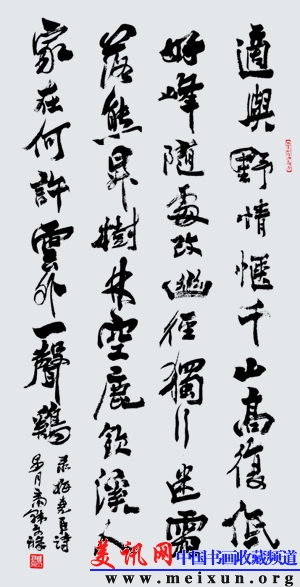 適與野情愜千山高復低
好峰隨處改幽徑獨行迷霜
落熊昇樹林空鹿飲溪人
家在何許雲外一聲鷄
录梅堯臣詩
美讯网 中国书画收藏频道
www.meixun.org